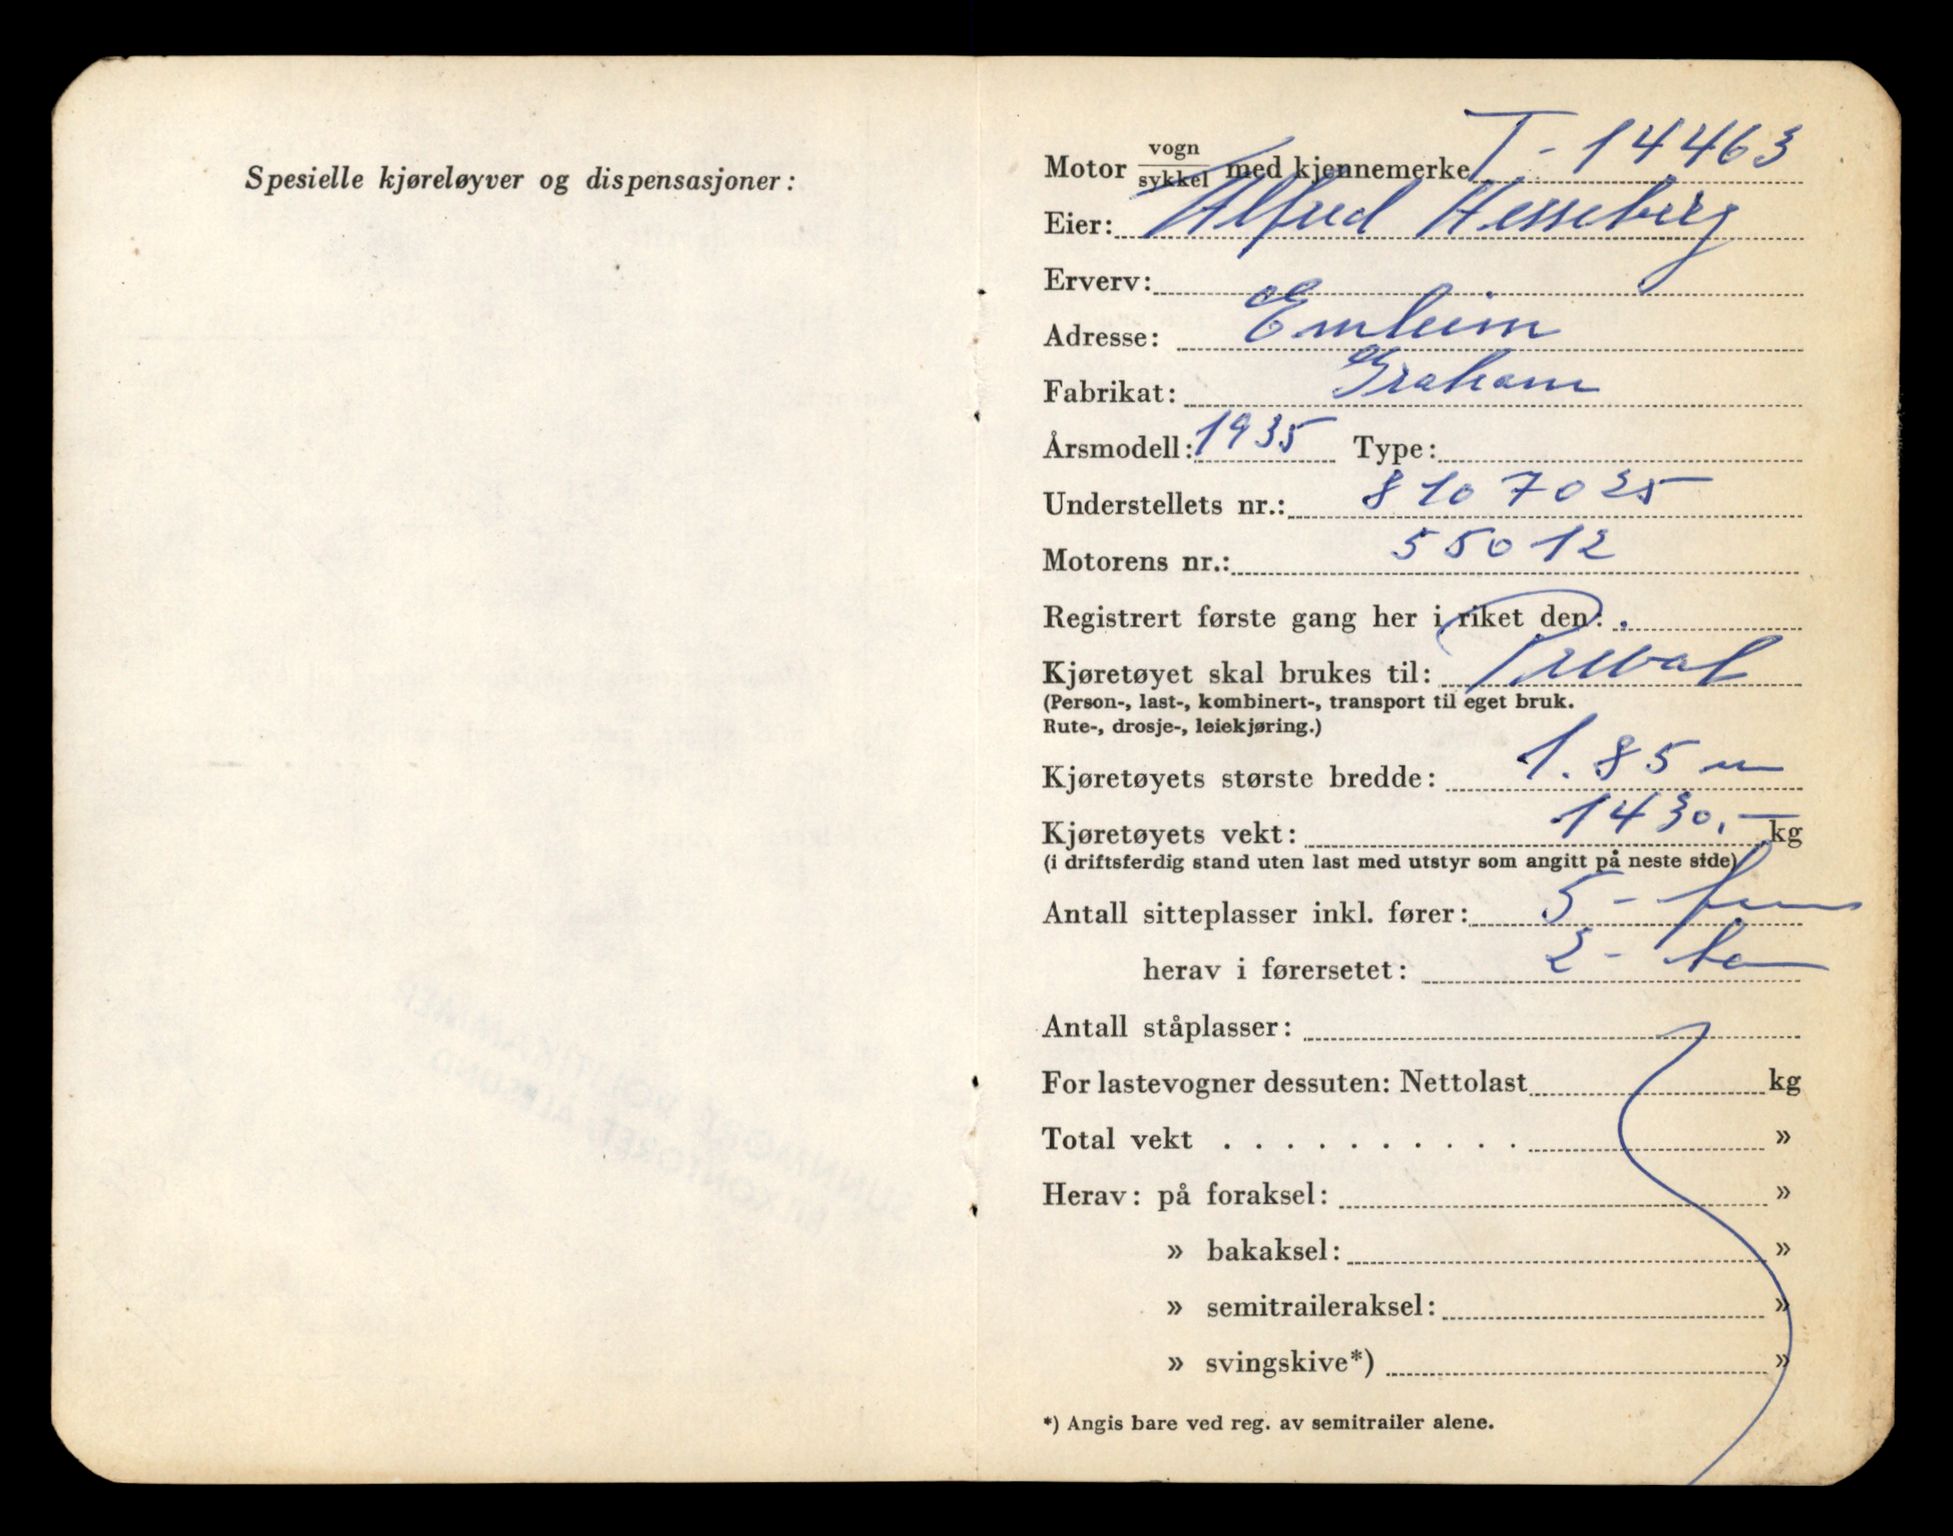 Spesielle kjøreløyver og dispensasjoner:
Motor vogn/sykkel med kjennemerke T - 14463
Eier: Alfred Hesseberg
Erverv:
Adresse: Emleim
Fabrikat: Graham
Årsmodell: 1935 Type:
Understellets nr.: 8107025
Motorens nr.: 55012
Registrert første gang her i riket den:
Kjøretøyet skal brukes til: Privat
(Person-, last-, kombinert-, transport til eget bruk.
Rute-, drosje-, leiekjøring.)
Kjøretøyets største bredde: 1.85 m
Kjøretøyets vekt: 1430.- kg
(i driftsferdig stand uten last med utstyr som angitt på neste side)
Antall sitteplasser inkl. fører: 5 - fem
herav i førersetet: 2 - to
Antall ståplasser:
For lastevogner dessuten: Nettolast kg
Total vekt . . . . . . . . . . »
Herav: på foraksel: »
» bakaksel: »
» semitraileraksel: »
» svingskive*) »
*) Angis bare ved reg. av semitrailer alene.